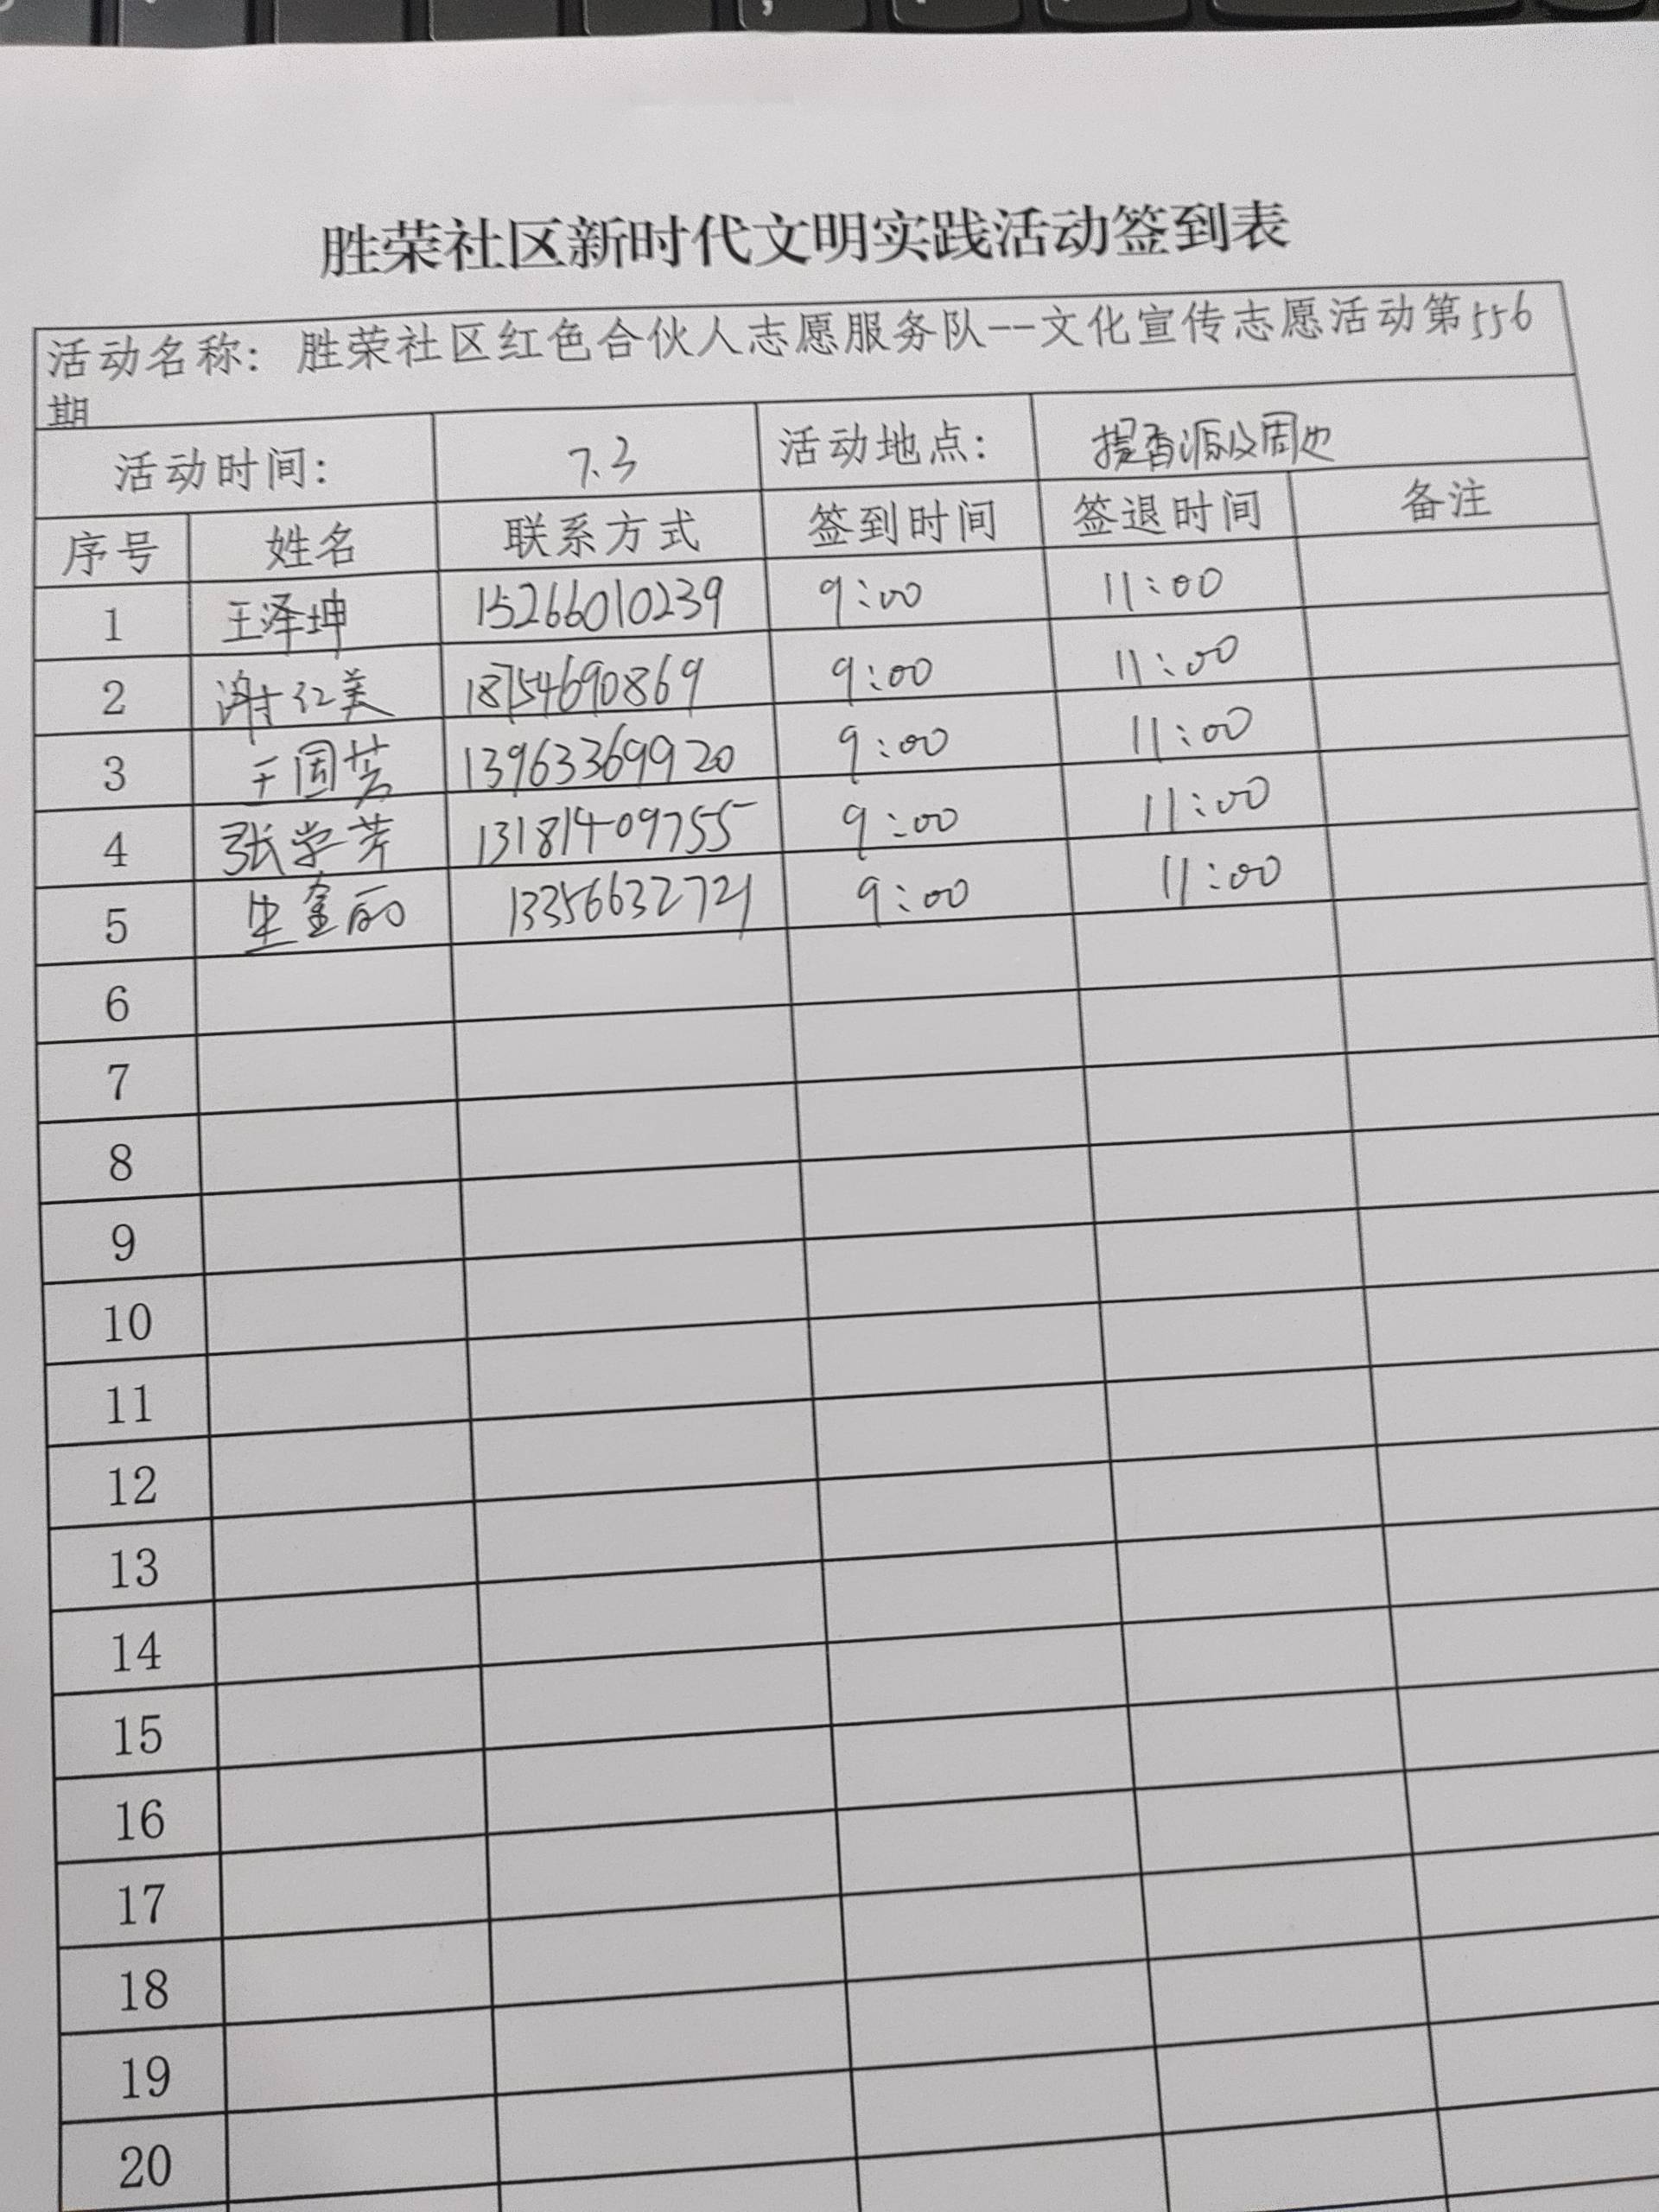 胜荣社区新时代文明实践活动签到表
活动名称：胜荣社区红色合伙人志愿服务队--文化宣传志愿活动第556
期
活动时间： 7.3 活动地点： 提香源及周边
序号 姓名 联系方式 签到时间 签退时间 备注
1 王泽坤 15266010239 9:00 11:00
2 谢红美 18754690869 9:00 11:00
3 王国芳 13963369920 9:00 11:00
4 张学芹 13181409755 9:00 11:00
5 生金丽 13356632721 9:00 11:00
6
7
8
9
10
11
12
13
14
15
16
17
18
19
20